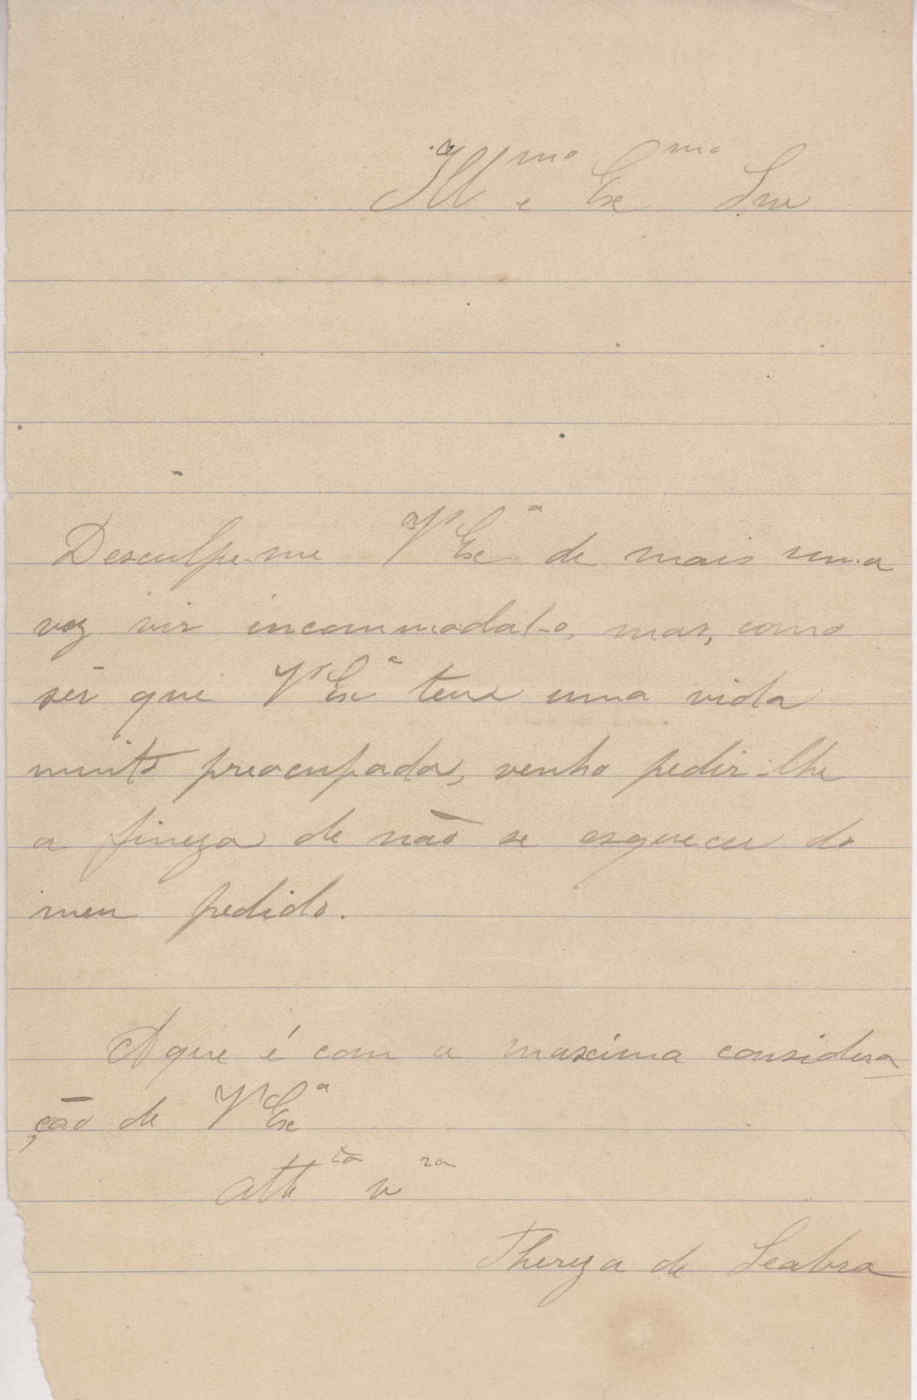 Illmo e Exmo Snr
Desculpe-me V Exª de mais uma
vez vir incommodal-o, mas, como
sei que V Exª tem uma vida
muito preocupada, venho pedir-lhe
a fineza de não se esquecer do
meu pedido.
A que é com a maxima considera
ção de V Exª
attcia vra
Thereza de Seabra